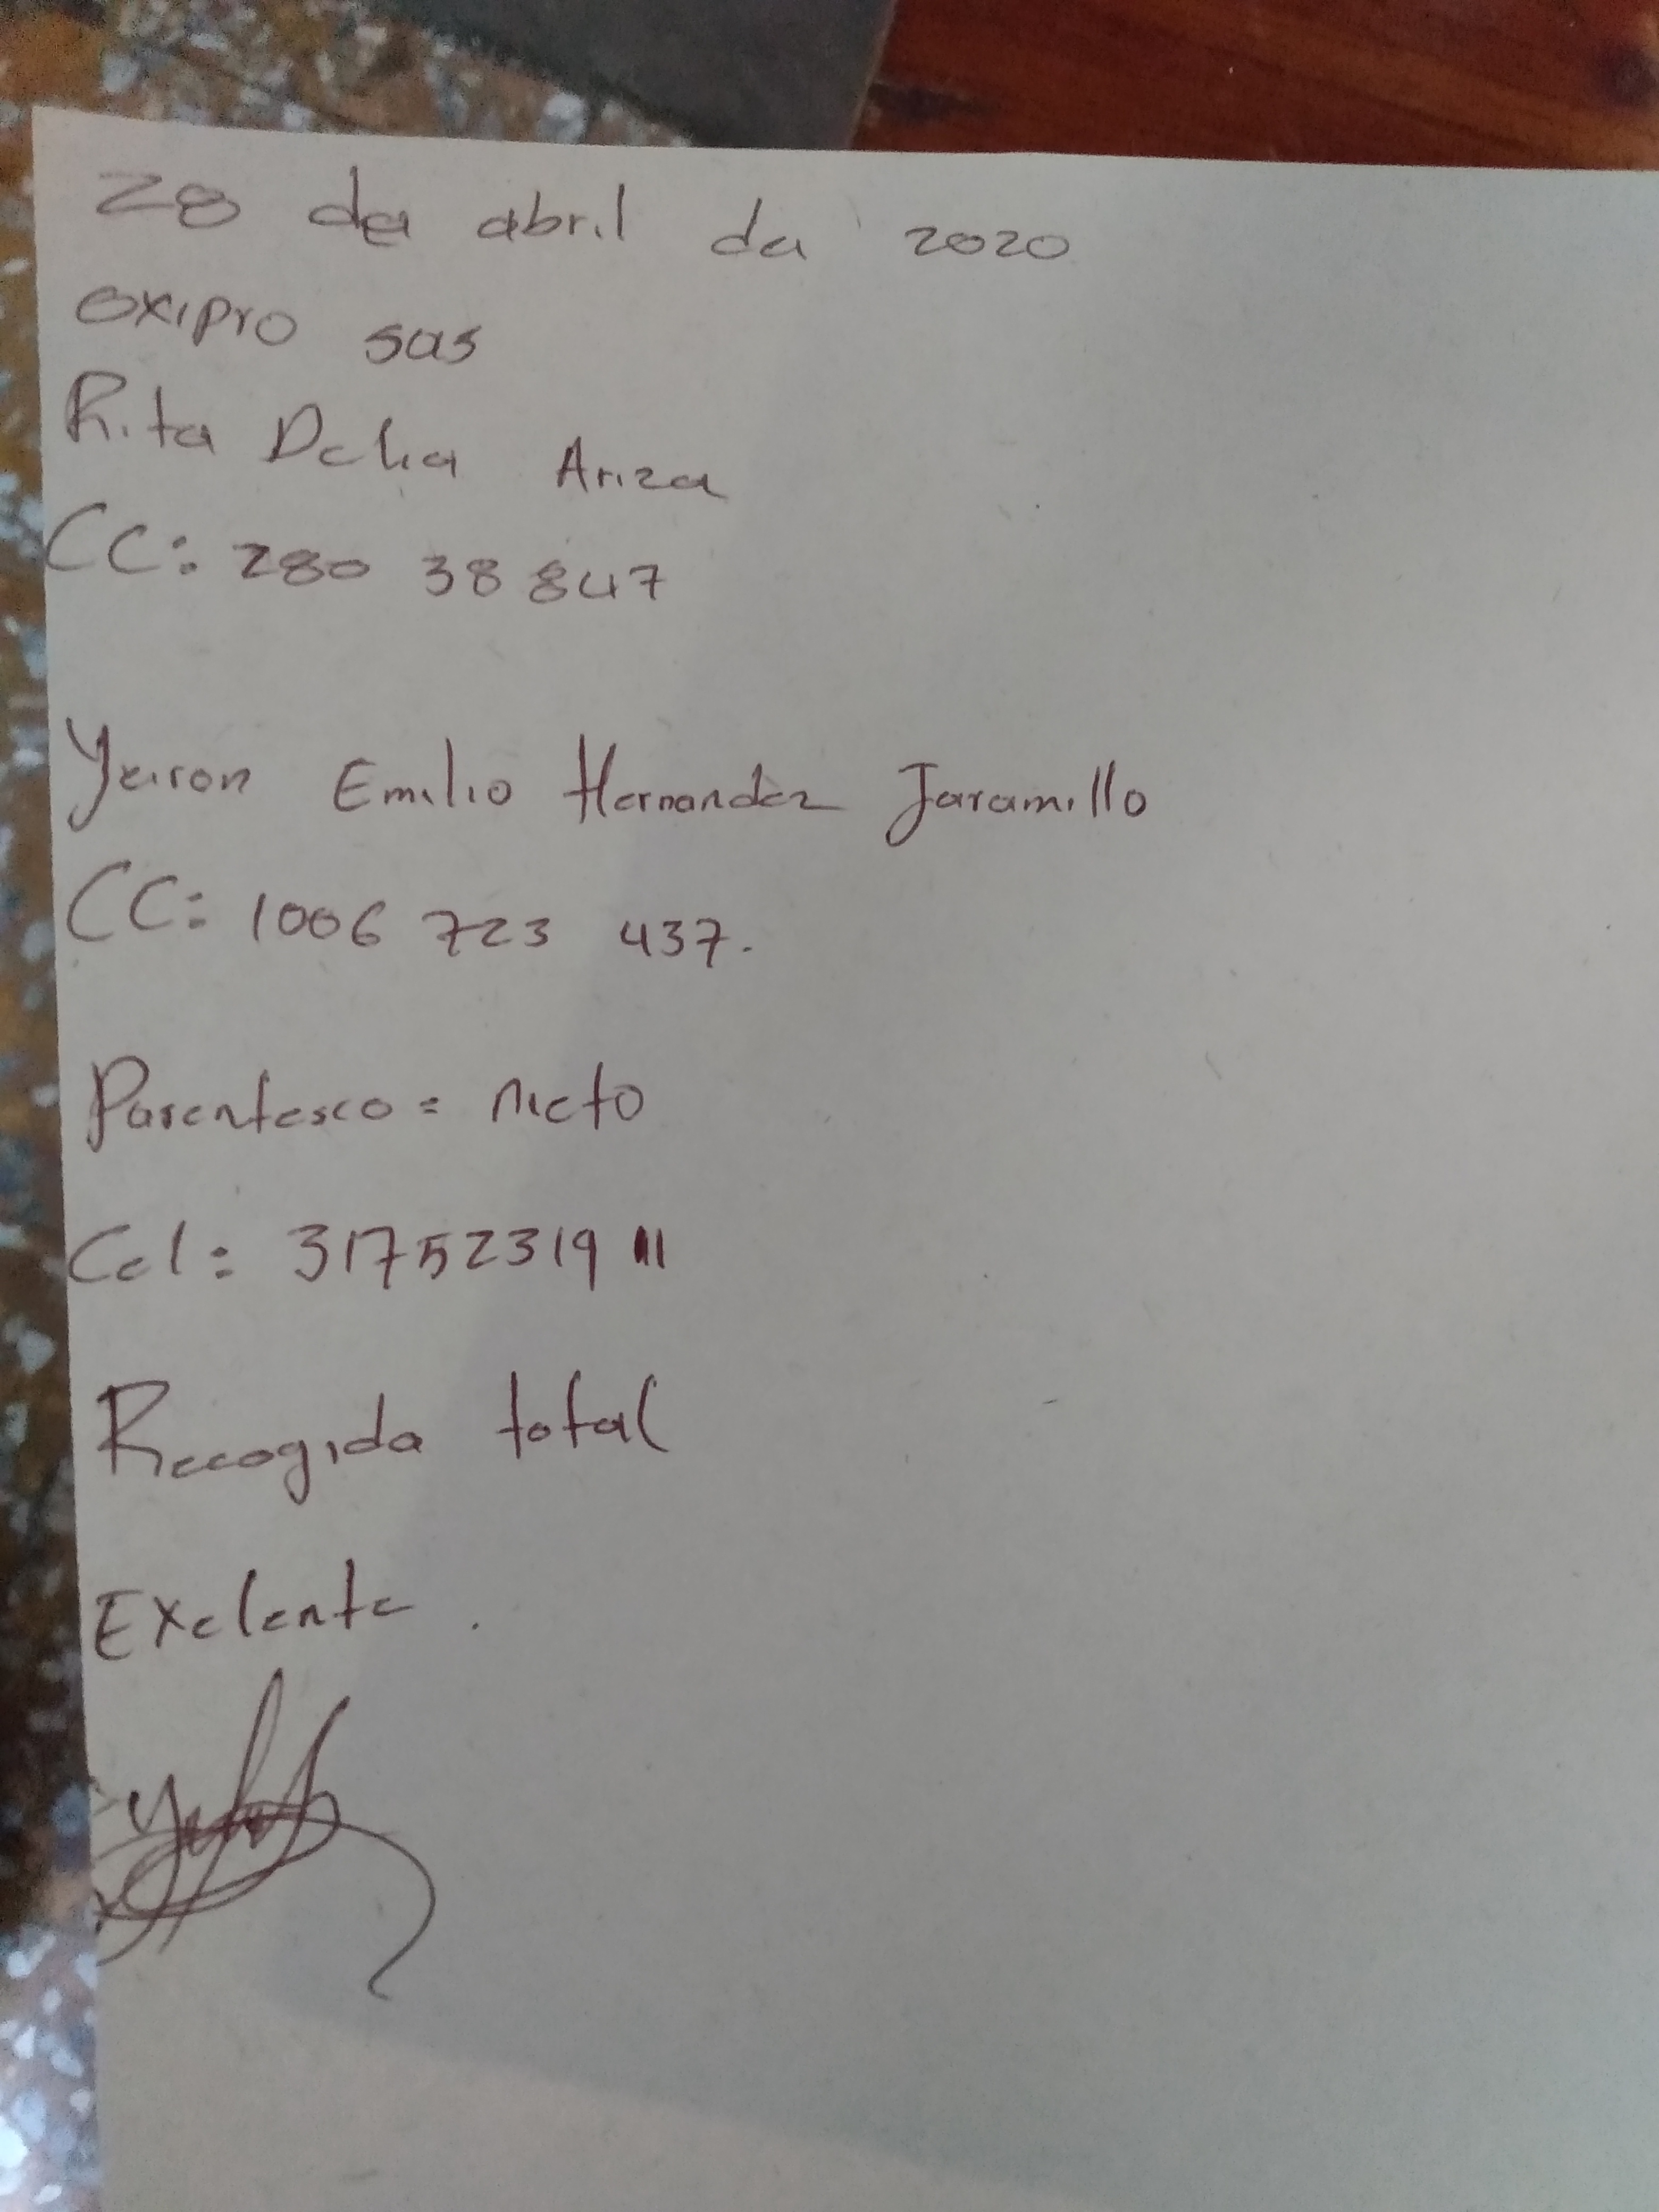 28 de abril de 2020
oxipro sas
Rita Delia Ariza
CC: 280 38 847
Yeiron Emilio Hernandez Jaramillo
CC: 1006 723 437.
Parentesco = nieto
Cel: 31752319 11
Recogida total
Exelente.